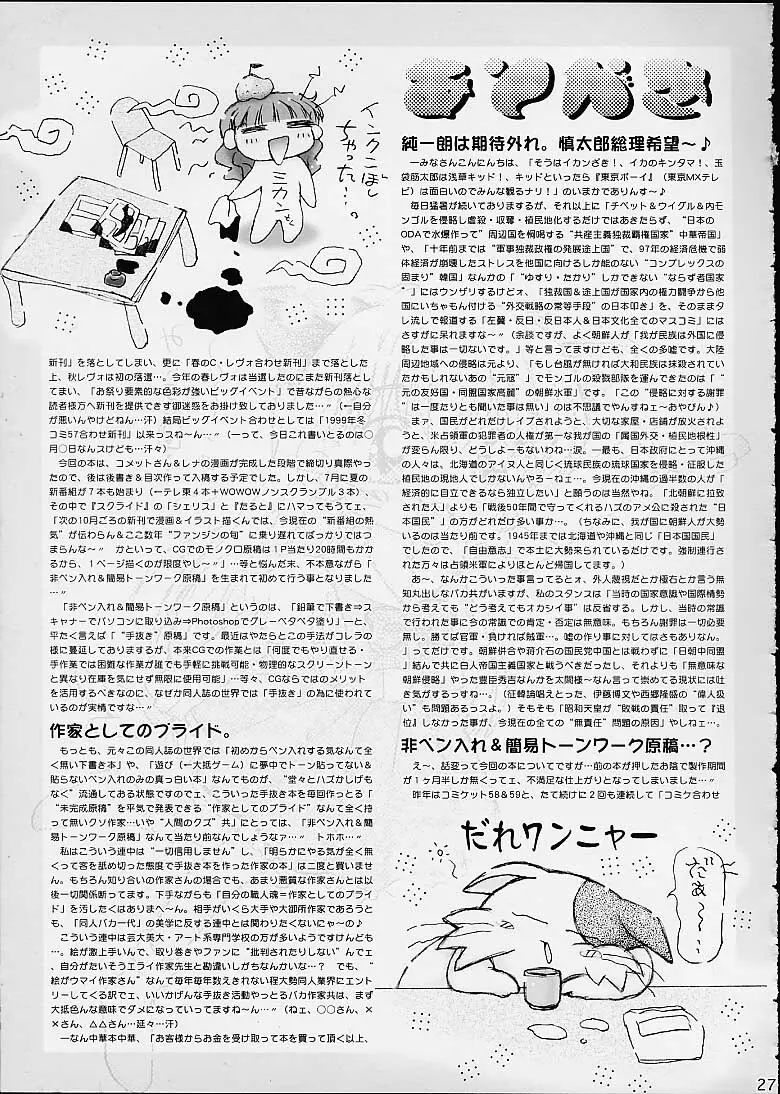 あとがき
純一朗は期待外れ。慎太郎総理希望～♪
―みなさんこんにんちは、「そうはイカンざき！、イカのキンタマ！、玉
袋筋太郎は浅草キッド！、キッドといったら『東京ボーイ』（東京MXテレ
ビ）は面白いのでみんな観るナリ！」のいまかでありんす～♪
毎日猛暑が続いてありますが、それ以上に「チベット＆ウイグル＆内モ
ンゴルを侵略し虐殺・収奪・植民地化するだけではあきたらず、“日本の
ODAで水爆作って”周辺国を恫喝する“共産主義独裁覇権国家”中華帝国」
や、「十年前までは“軍事独裁政権の発展途上国”で、97年の経済危機で弱
体経済が崩壊したストレスを他国に向けるしか能のない“コンプレックスの
固まり”韓国」なんかの「“ゆすり・たかり”しかできない“ならず者国家
”」にはウンザリするけどォ、「独裁国＆途上国が国家内の権力闘争から他
国にいちゃもん付ける“外交戦略の常等手段”の日本叩き」を、そのままタ
レ流しで報道する「左翼・反日・反日本人＆日本文化全てのマスコミ」には
さすがに呆れますな～″（余談ですが、よく朝鮮人が「我が民族は外国に侵
略した事は一切ないです。」等と言ってますけども、全くの多嘘です。大陸
周辺地域への侵略は元より、「もし台風が無ければ大和民族は抹殺されてい
たかもしれないあの“元寇”」でモンゴルの殺戮部隊を運んできたのは「“
元の友好国・同盟国家高麗”の朝鮮水軍」です。「この“侵略に対する謝罪
”は一度たりとも聞いた事は無い」のは不思議でやんすねェ～あやぴん♪）
まァ、国民がどんだけレイプされようと、大切な家屋・店舗が放火されよ
うと、米占領軍の犯罪者の人権が第一な我が国の「属国国外交・植民地根性」
が変らん限り、どうしよぉーもないわね…涙。―最も、日本政府にとって沖縄
の人々は、北海道のアイヌ人と同じく琉球民族の琉球国家を侵略・征服した
植民地の現地人でしかないんやろーねェ…。今現在の沖縄の過半数の人が「
経済的に自立できるなら独立したい」と願うのは当然やね。「北朝鮮に拉致
された人」よりも「戦後50年間で守ってくれるハズのアメ公に殺された“日
本国民”」の方がどれだけ多い事か…。（ちなみに、我が国に朝鮮人が大勢
いるのは当たり前です。1945年までは北海道や沖縄と同じ「日本国国民」
でしたので、「自由意志」で本土に大勢来られているだけです。強制連行さ
れた方々は占領米軍によりほとんど帰国してます。）
あ～、なんかこういった事言ってるとォ、外人蔑視だとか極右とか言う無
知丸出しなバカ共がいますが、私のスタンスは「当時の国家意識や国際情勢
から考えても“どう考えてもオカシイ事”は反省する。しかし、当時の常識
で行われた事に今の常識での肯定・否定は無意味。もちろん謝罪は一切必要
無し。勝てば官軍・負ければ賊軍…。嘘の作り事に対してはさもありなん。
」ってだけです。朝鮮併合や蒋介石の国民党中国とは戦わずに「日朝中同盟
」結んで共に白人帝国主義国家と戦うべきだったし、それよりも「無意味な
朝鮮侵略」やった豊臣秀吉なんかを太閤様～なん言って崇めてる現状には吐
き気がするっすね…。（征韓論唱えとった、伊藤博文や西郷隆盛の“偉人扱
い”も問題あるっスよ。）そもそも「昭和天皇が“敗戦の責任”取って『退
位』しなかった事が、今現在の全ての“無責任”問題の原因」やしねェ…。
非ペン入れ＆簡易トーンワーク原稿…？
え～、話変って今回の本についてですが…前の本が押したお陰で製作期間
が１ヶ月半しか無くってェ、不満足な仕上がりとなってしまいました…″
昨年はコミケット58＆59と、たて続けに２回も連続して「コミケ合わせ
インクこぼし
ちゃった！…
ミカン
新刊」を落としてしまい、更に「春のC・レヴォ合わせ新刊」まで落とした
上、秋レヴォは初の落選…。今年の春レヴォは当選したのにまた新刊落とし
てまい、「お祭り要素的な色彩が強いビッグイベント」で昔ながらの熱心な
読者様方へ新刊を提供できず御迷惑をお掛け致しておりました…″（←自分
が悪いんやけどねん…汗）結局ビッグイベント合わせとしては「1999年冬
コミ57合わせ新刊」以来っスね～ん…″（―って、今日これ書いとるのは○
月○日なんスけども…汗々）
今回の本は、コメットさん＆レナの漫画が完成した段階で締切り真際やっ
たので、後は後書き＆目次作って入稿する予定でした。しかし、7月に夏の
新番組が７本も始まり（―テレ東４本＋WOWOWノンスクランブル３本）、
その中で『スクライド』の「シェリス」と『たると』にハマってもうてェ、
「次の10月ごろの新刊で漫画＆イラスト描くんでは、今現在の“新番組の熱
気”が伝わらん＆ここ数年“ファンジンの旬”に乗り遅れてばっかりではつ
まらんな～″　かといって、CGでのモノクロ原稿は１P当たり20時間もかか
るから、１ページ描くのが限度やし～″」…等と悩んだ末、不本意ながら「
非ペン入れ＆簡易トーンワーク原稿」を生まれて初めて行う事となりました
…″
「非ペン入れ＆簡易トーンワーク原稿」というのは、「鉛筆で下書き⇒ス
キャナーでパソコンに取り込み⇒Photoshopでグレーベタベタ塗り」―と、
平たく言えば「“手抜き”原稿」です。最近はやたらとこの手法がコレラの
様に蔓延してありますが、本来CGでの作業とは「何度でもやり直せる・
手作業では困難な作業が誰でも手軽に挑戦可能・物理的なスクリーントーン
と異なり在庫を気にせず無限に使用可能」…等々、CGならではのメリット
を活用するべきなのに、なぜか同人誌の世界では「手抜き」の為に使われて
いるのが実情ですな…″
作家としてのプライド。
もっとも、元々この同人誌の世界では「初めからペン入れする気なんて全
く無い下書き本」や、「遊び（←大抵ゲーム）に夢中でトーン貼ってない＆
貼らないペン入れのみの真っ白い本」なんてものが、“堂々とハズかしげも
なく”流通してある状態ですのでェ、こういった手抜き本を毎回作っとる「
“未完成原稿”を平気で発表できる“作家としてのプライド】なんて全く持
って無いクソ作家…いや“人間のクズ”共」にとっては、「非ペン入れ＆簡
易トーンワーク」なんて当たり前なんでしょうなァ…″　トホホ…″
私はこういう連中は“一切信用しません」し、「明らかにやる気が全く無
くって客を舐め切った態度で手抜き本を作った作家の本」は二度と買いませ
ん。もちろん知り合いの作家さんの場合でも、あまり悪質な作家さんとは以
後一切関係断ってます。下手ながらも「自分の職人魂＝作家としてのプライ
ド」を汚したくはありまへ～ん。相手がいくら大手や大御所作家であろうと
も、「同人バカ一代」の美学に反する連中とは関わりたくないにゃ～の♪
こういう連中は芸大美大・アート系専門学校の方が多いようですけんども
…。絵が激上手いんで、取り巻きやファンに“批判されたりしない】んでェ
、自分がたいそうエライ作家先生と勘違いしがちなんかいな…？　でも、「
絵がウマイ作家さん」なんて毎年毎年数えきれない程大勢同人業界にエント
リーしてくる訳でェ、いいかげんな手抜き活動やっとるバカ作家共は、まず
大抵色んな意味でダメになっていってますね～ん…″（ねェ、○○さん、×
×さん、△△さん…延々…汗）
―なん中華本中華、「お客様からお金を受け取って本を買って頂く以上、
だれワンニャー
だぁ～～…。
27